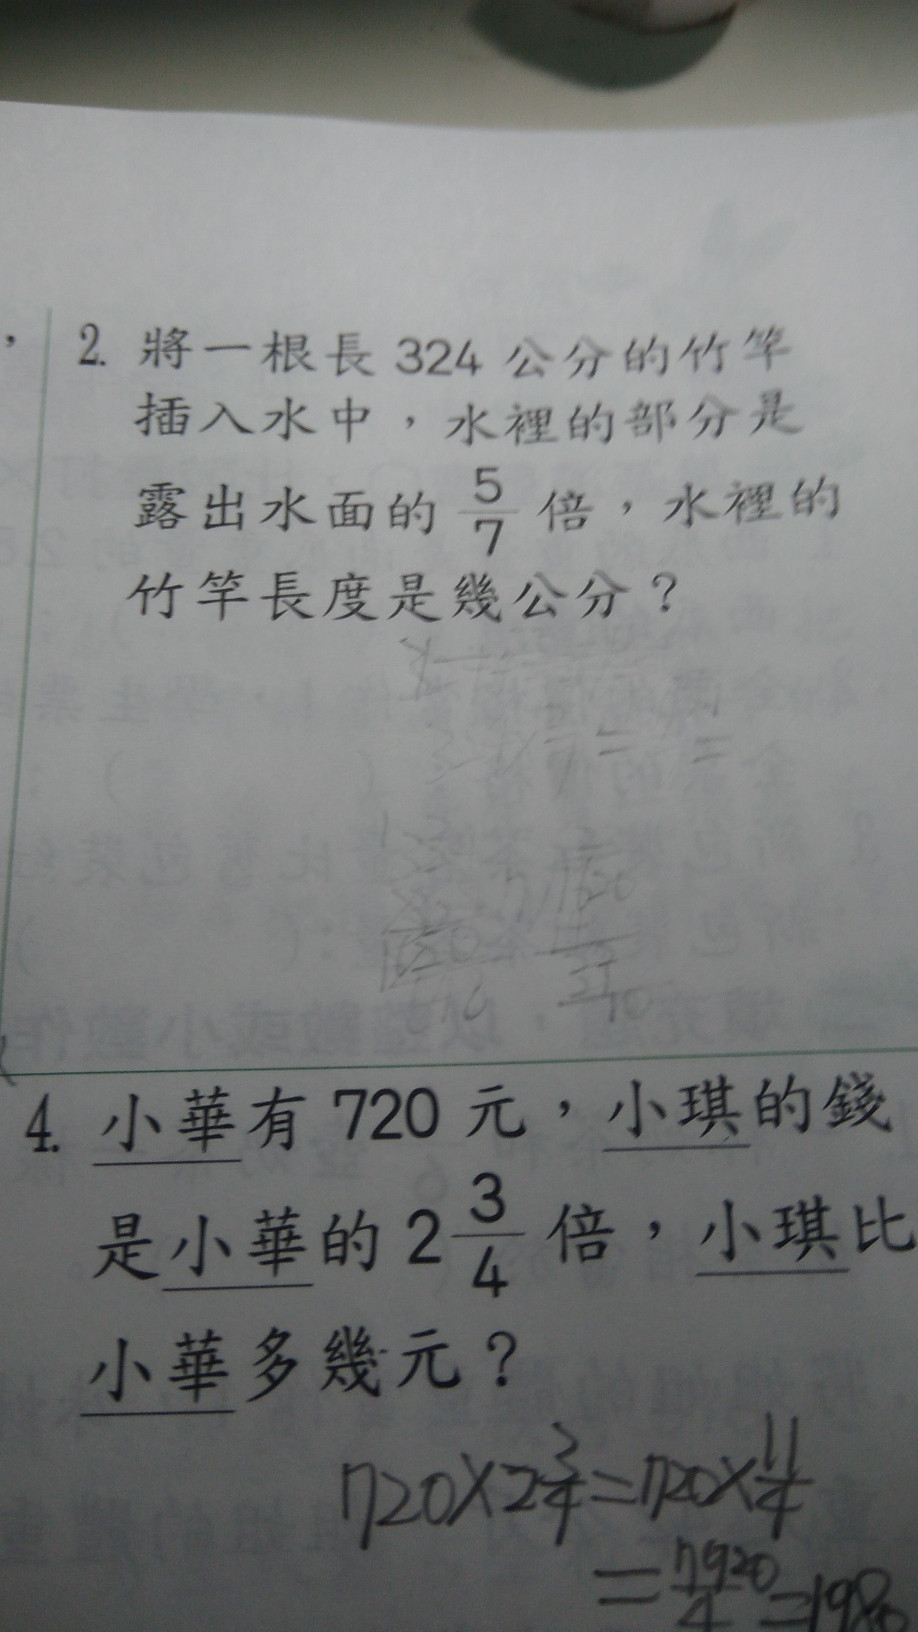 2. 將一根長 324 公分的竹竿
插入水中，水裡的部分是
露出水面的 5/7 倍，水裡的
竹竿長度是幾公分？
4. 小華有 720 元，小琪的錢
是小華的 2 3/4 倍，小琪比
小華多幾元？
720×2 3/4=720×11/4
=7920/4=1980